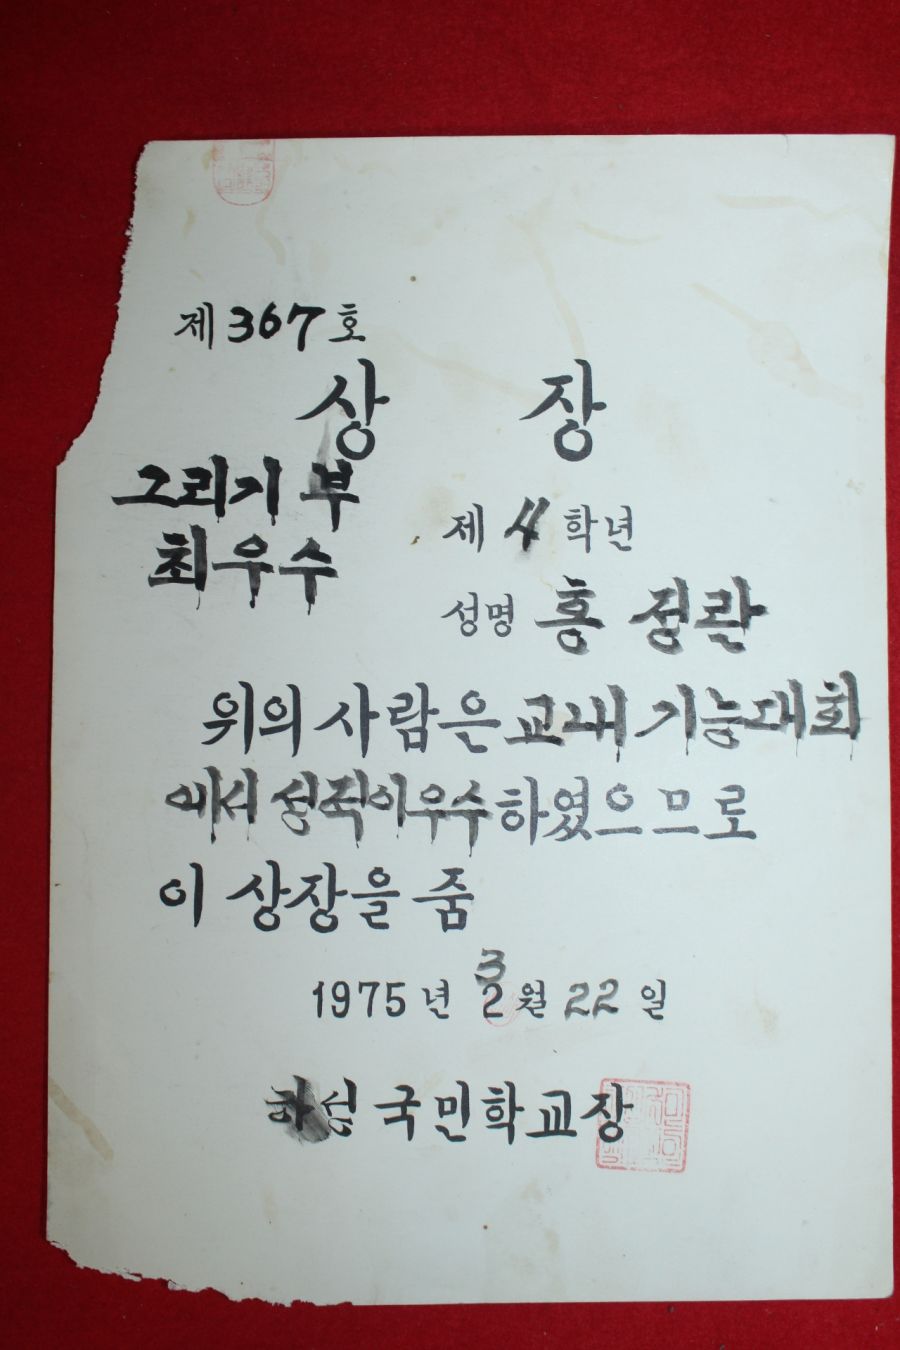 제 367 호
상 장
그리기 부
최우수
제 4 학년
성명 홍 정란
위의 사람은 교내 기능대회
에서 성적이우수하였으므로
이 상장을 줌
3
1975 년 2 월 22 일
하성 국민학교장